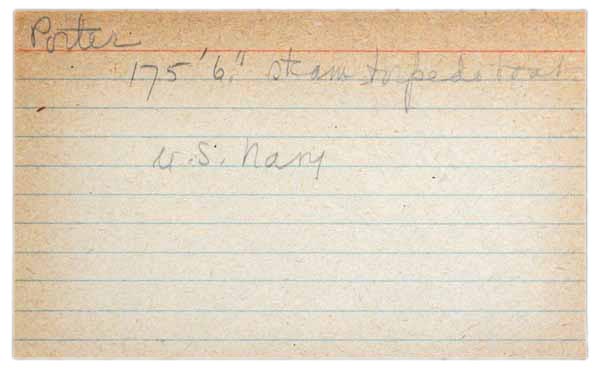 Porter
175'6" steam torpedo boat.
U.S. Navy